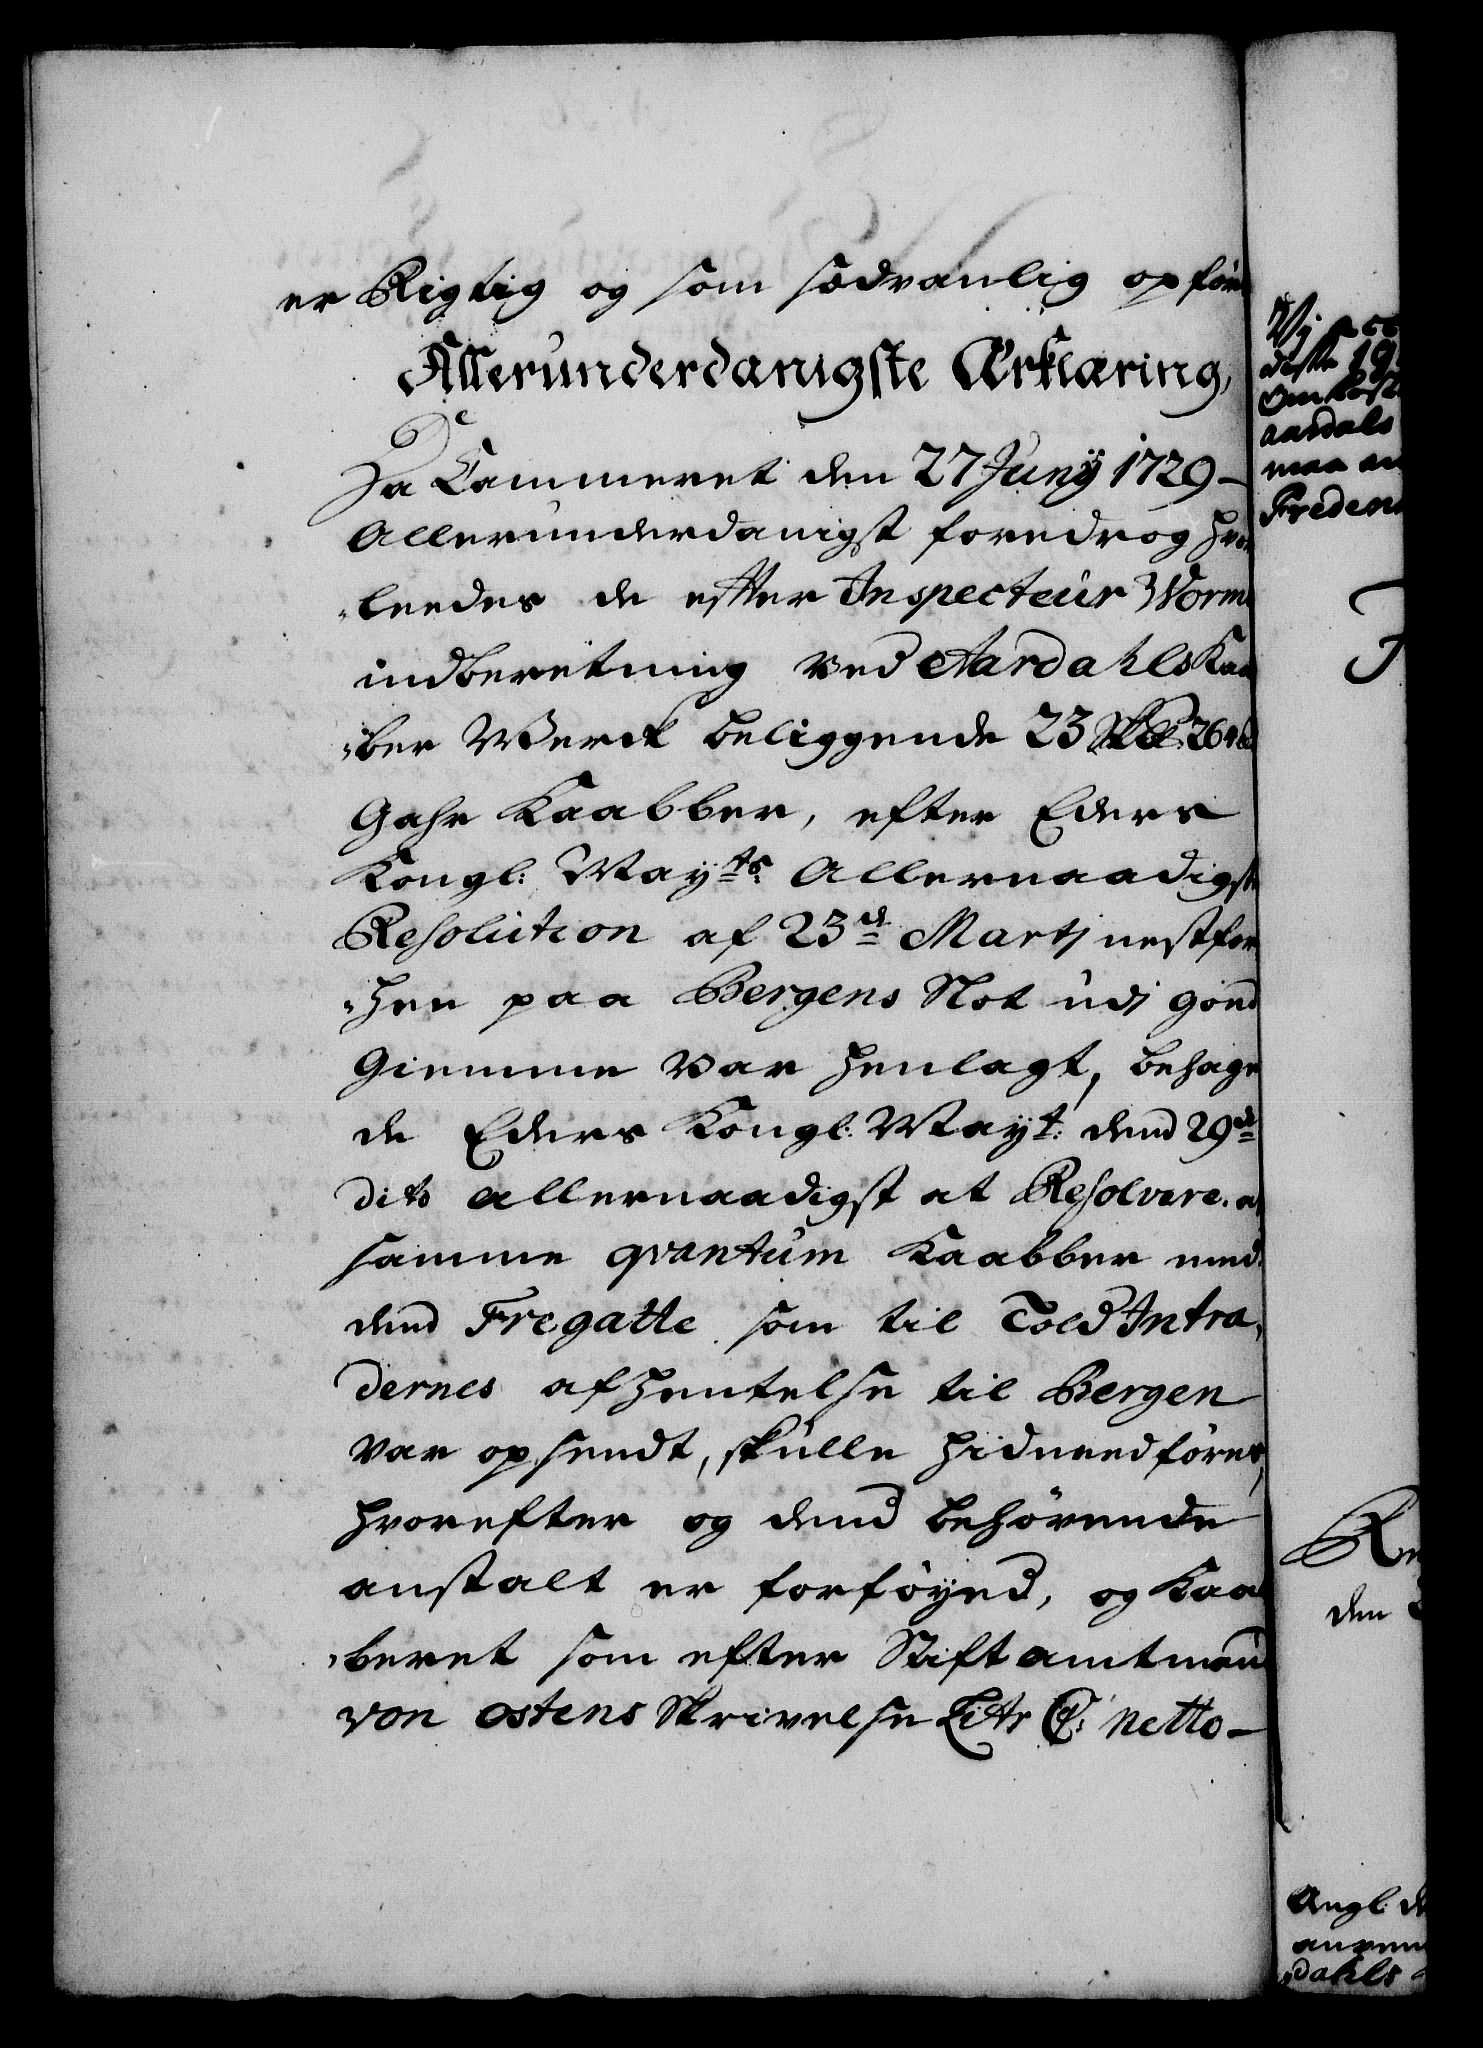 er Rigtig og som sædvanlig opført
Allerunderdanigste Erklæring,
Da Cammeret den 27 Juny 1729 –
Allerunderdanigst foredrog hvor
-leedes de efter Inspecteur Worms
indberetning ved Aardahls Kaa
-ber Werck beliggende 23 26
Gahr Kaabber, efter Eders
Kongl: Mayts: Allernaadigste
Resolution af 23d Martj nestfor
-hen paa Bergens Slot udj goed
Giemme var henlagt, behage
de Eders Kongl: Mayt: dend 29de
dito allernaadigst at Resolvere. at
samme qvantum Kaabber med
dend Fregatte som til Told Intra-
dernes afhentelse til Bergen
var opsendt, skulle hidnedføres,
hvorefter og dend behørende
anstalt er forføyed, og Kaa
-beret som efter Stiftamtmand
von ostens Skrivelse Litr C: netto –
Vj
19
aardals
maa
den
Angl:
dahls